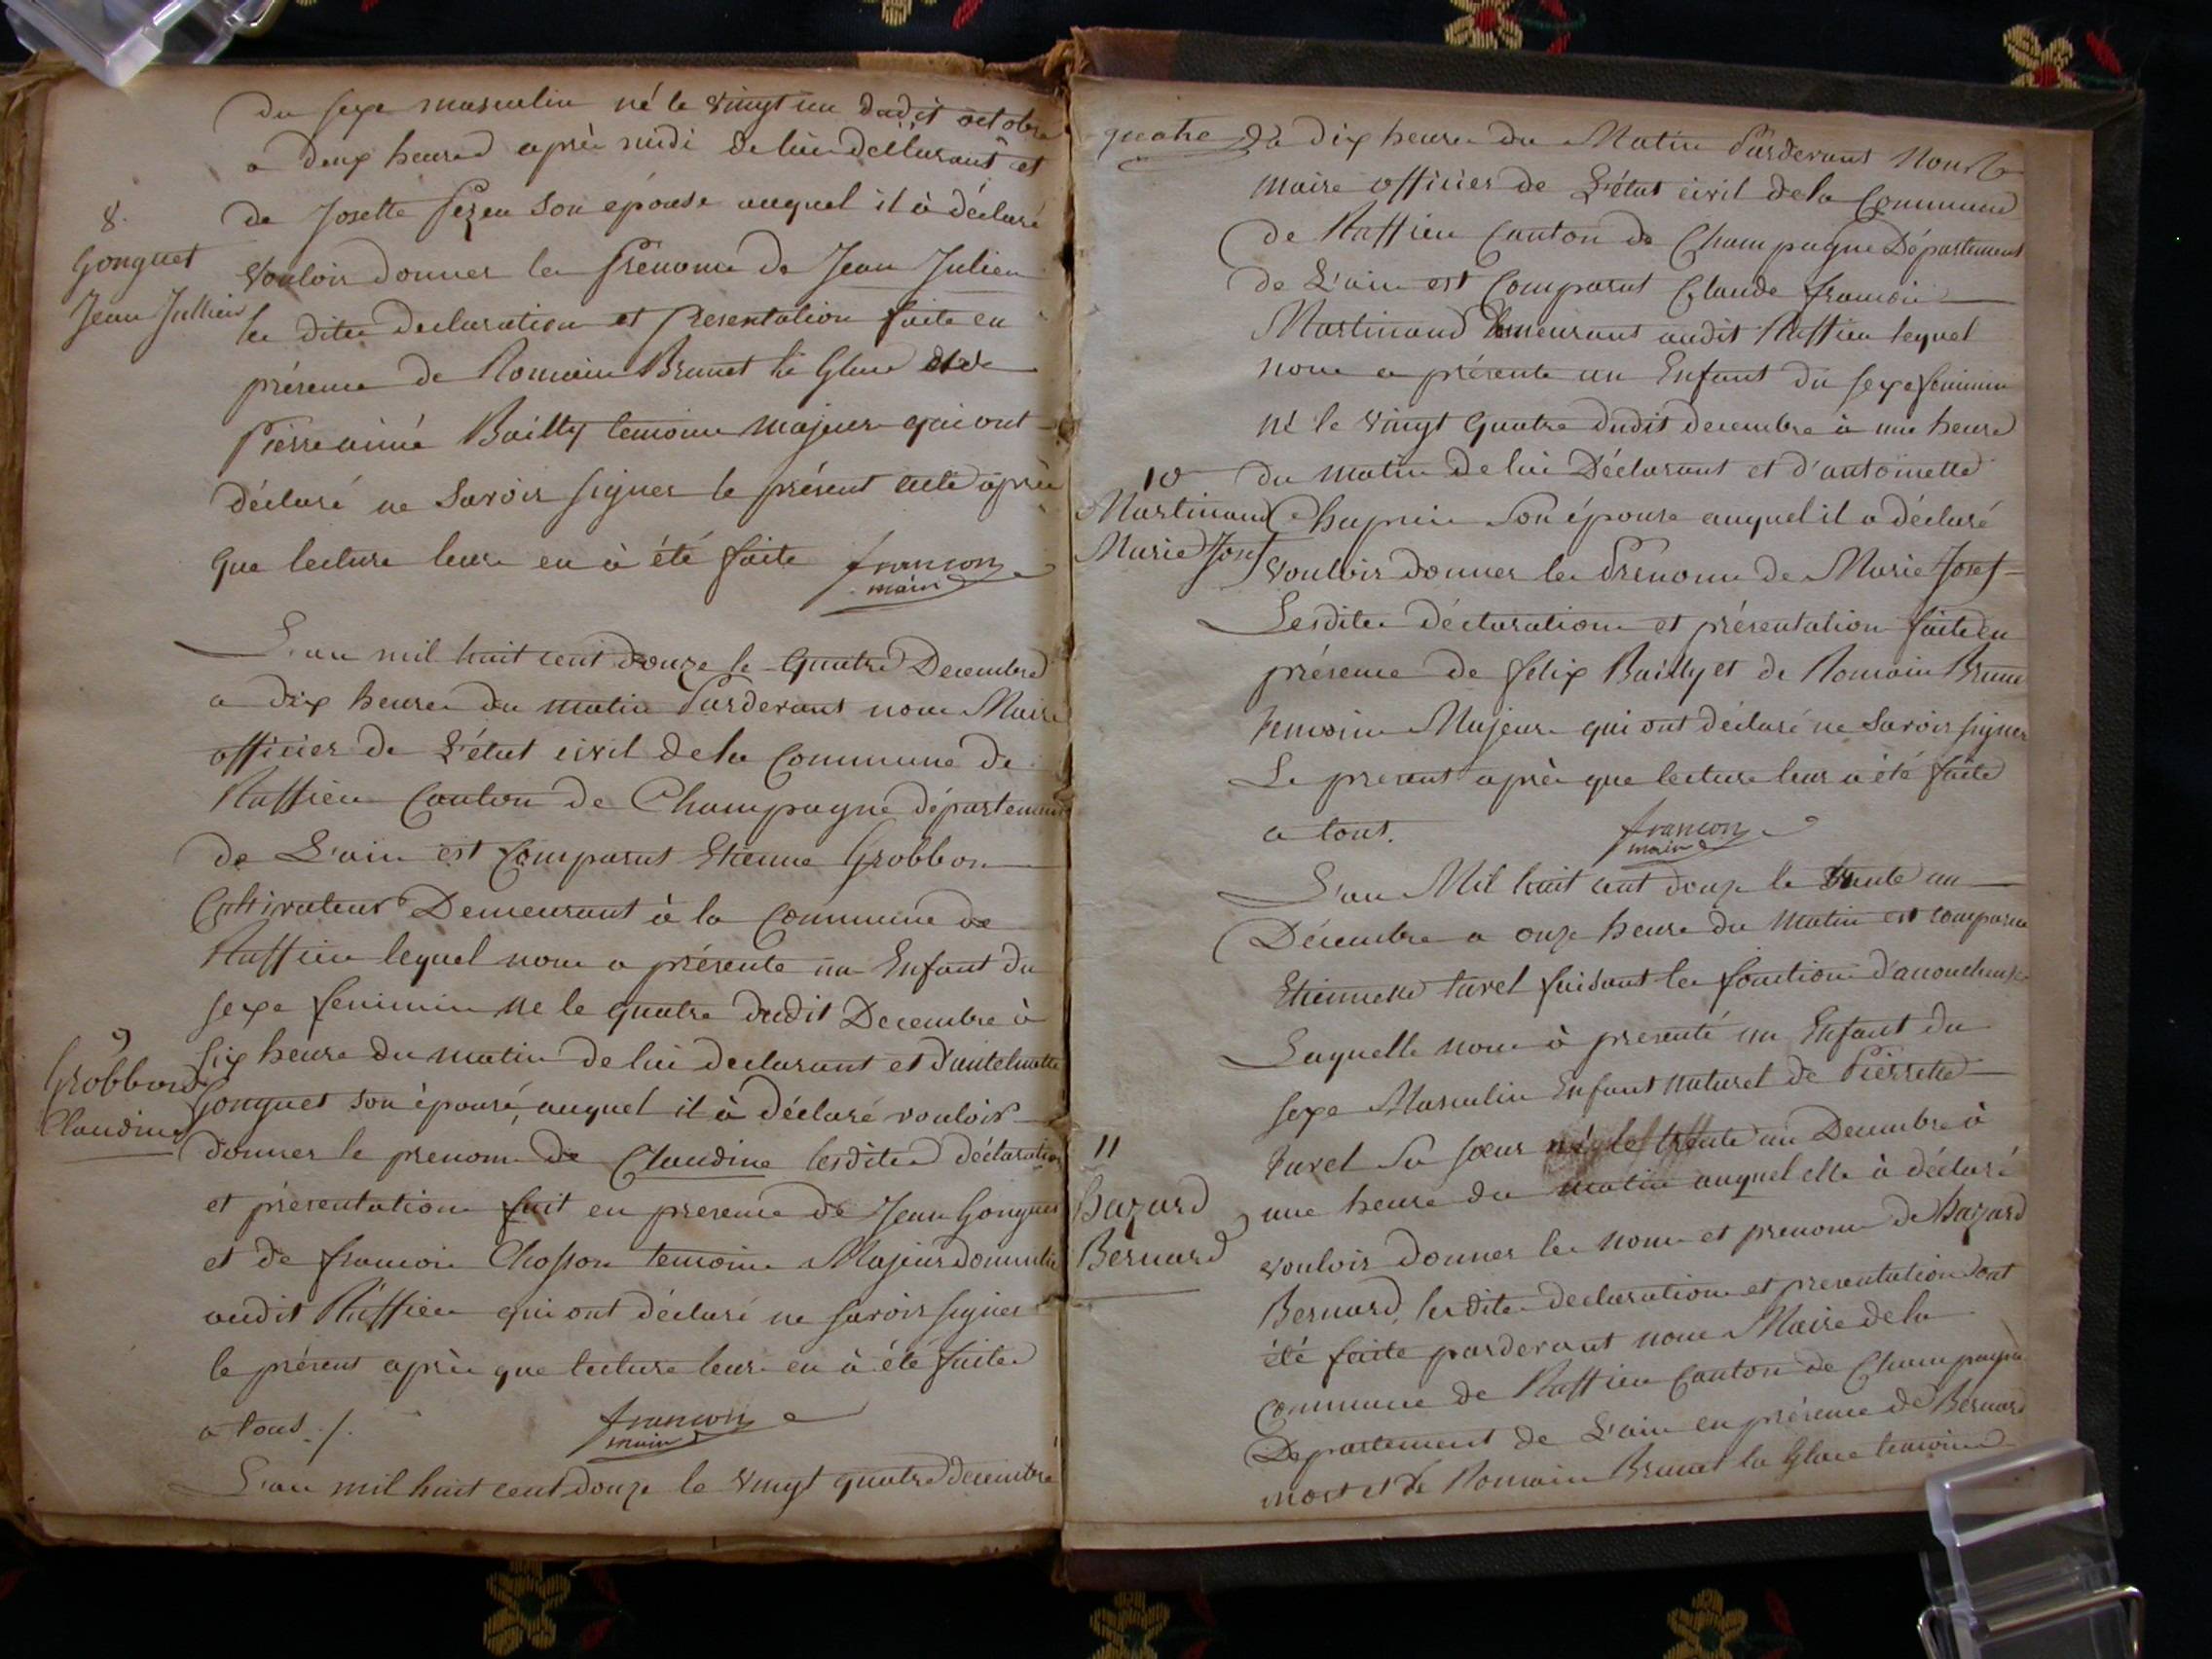 du sexe masculin né le vingt un dudit octobre
a deux heures après midi de lui déclarant et
de Josette son épouse auquel il à déclaré
8.
Gonguet
Jean Jullien
vouloir donner les Prénoms de Jean Julien
les dites declaration et presentation faite en
présence de Romain Brunet la Glace et de
Pierre aimé Bailly temoins majeurs qui ont
déclaré ne Savoir signer le présent acte après
que lecture leurs en à été faite françon
maire
L'an mil huit cent douze le quatre Decembre
a dix heures du matin Pardevant nous Maire
officier de L'état civil de la Commune de
Ruffieu Canton de Champagne département
de L'ain est Comparut Etienne Grobbon
Cultivateur Demeurant à la Commune de
Ruffieu lequel nous a présenté un Enfant du
sexe feminin ne le quatre dudit Decembre à
9
Grobbon
Claudine
six heures du matin de lui declarant et d'antelmette
Gonguet son épouse, auquel il à déclaré vouloir
donner le prenom de Claudine lesdites déclaration
et présentation fait en presence de Jean Gonguet
et de françois Chosson temoins Majeurs domicilie
audit Ruffieu qui ont déclaré ne savoir signer
le présent après que lecture leurs en à été faite
a tous ./. françon
maire
L'an mil huit cent douze le vingt quatre decembre
quatre à dix heures du Matin Pardevant Nous
maire officier de L'état civil de la Commune
de Ruffieu Canton de Champagne Département
de L'ain est Comparut Claude françois
Martinand Demeurant audit Ruffieu lequel
nous a présenté un Enfant du sexe feminin
né le vingt quatre dudit decembre à une heure
10
Martinand
Marie Josef
du matin de lui Déclarant et d'antoinette
Chapuis Son épouse auquel il a déclaré
vouloir donner les Prenoms de Marie Josef
Lesdites déclaration et présentation faite en
présence de felix Bailly et de Romain Brunet
temoins Majeurs qui ont déclaré ne Savoir signer
Le present après que lecture leur a été faite
a tous. françon
maire
L'an Mil huit cent douze le trente un
Décembre a onze heures du matin est comparue
Etiennette turel faisant les fonctions d'accoucheuse
Laquelle nous à presenté un Enfant du
sexe Masculin Enfant naturel de Pierrette
turel sa sœur né le trente un Decembre à
11
Bazard
Bernard
une heure du matin auquel elle à déclaré
vouloir donner les noms et prenoms de Bazard
Bernard, les dites declaration et presentation ont
été faite pardevant nous Maire de la
Commune de Ruffieu Canton de Champagne
Departement de L'ain en présence de Bernard
et de Romain Brunet la Glace temoins